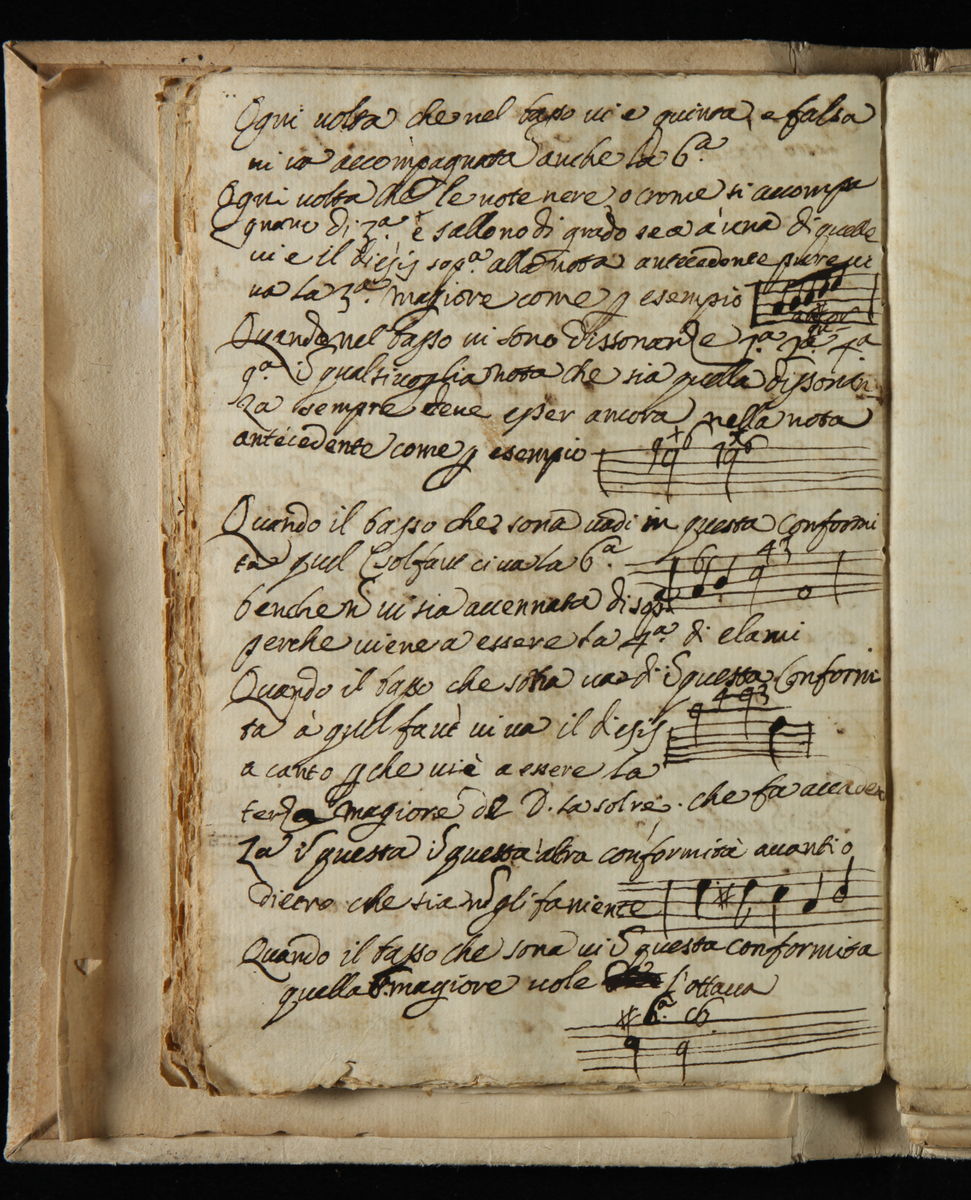 Ogni volta che nel basso vi e quinta, e falsa
vi va accompagnata anche la 6ª
Ogni volta che le note nere o crome si accompa
gnano di 3ª e sallono di grado se a una di quelle
vi e il diesis sopª alla nota antecedente pure vi
va la 3ª magiore come p esempio
Quando nel basso vi sono dissonanze 7ª 2ª 4ª
9ª î qualsivoglia nota che sia quella dissonan
za sempre deve esser ancora nella nota
antecedente come p esempio
Quando il basso che sona vadi in questa conformi
ta quel Csolfaut ci va la 6ª
6 4 3
benche n vi sia accennata di sopª
perche viene a essere la 4ª di elami
Quando il basso che sona vadi î questa conformi
ta à quel faut vi va il diesis
4 3
a canto p che viè a essere la
terza magiore di D. la solre. che fa accaden
za î questa î questa altra conformità avanti o
dietro che sia n gli fa niente
Quando il basso che sona vi î questa conformita
quella 6 magiore vole l'ottava
6ª